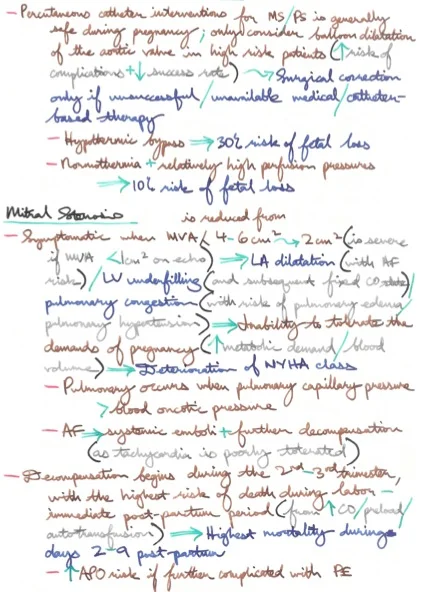 - Percutaneous catheter interventions for MS/PS is generally
safe during pregnancy; only consider balloon dilatation
of the aortic valve in high risk patients (↑ risk of
complications + ↓ success rate) → Surgical correction
only if unsuccessful/unavailable medical/catheter-
based therapy
- Hypothermic bypass ⇒ 30% risk of fetal loss
- Normothermia + relatively high perfusion pressures
⇒ 10% risk of fetal loss
Mitral Stenosis
is reduced from
- Symptomatic when MVA < 4-6cm² → 2cm² (is severe
if MVA <1cm² on echo) ⇒ LA dilatation (with AF
risk)/LV underfilling (and subsequent fixed CO state)/
pulmonary congestion (with risk of pulmonary edema/
pulmonary hypertension) ⇒ Inability to tolerate the
demands of pregnancy (↑ metabolic demand/blood
volume) ⇒ Deterioration of NYHA class
- Pulmonary occurs when pulmonary capillary pressure
> blood oncotic pressure
- AF ⇒ systemic emboli + further decompensation
(as tachycardia is poorly tolerated)
- Decompensation begins during the 2nd-3rd trimester,
with the highest risk of death during labor -
immediate post-partum period (from ↑ CO/preload/
autotransfusion) ⇒ Highest mortality during
days 2-9 post-partum
- ↑ APO risk if further complicated with PE